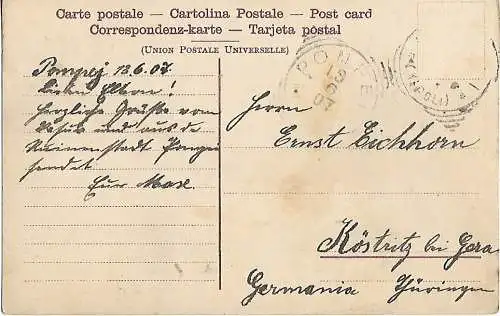 Carte postale — Cartolina Postale — Post card
Correspondenz-karte — Tarjeta póstal
(UNION POSTALE UNIVERSELLE)
Pompej 13.6.07.
Lieben Eltern!
Herzliche Grüße vom
Vesuv und aus der
Ruinenstadt Pompei
sendet
Euer Max.
POMPEI
13
6
07
(NAPOLI)
Herrn
Ernst Eichhorn
Köstritz bei Gera
Germania Thüringen